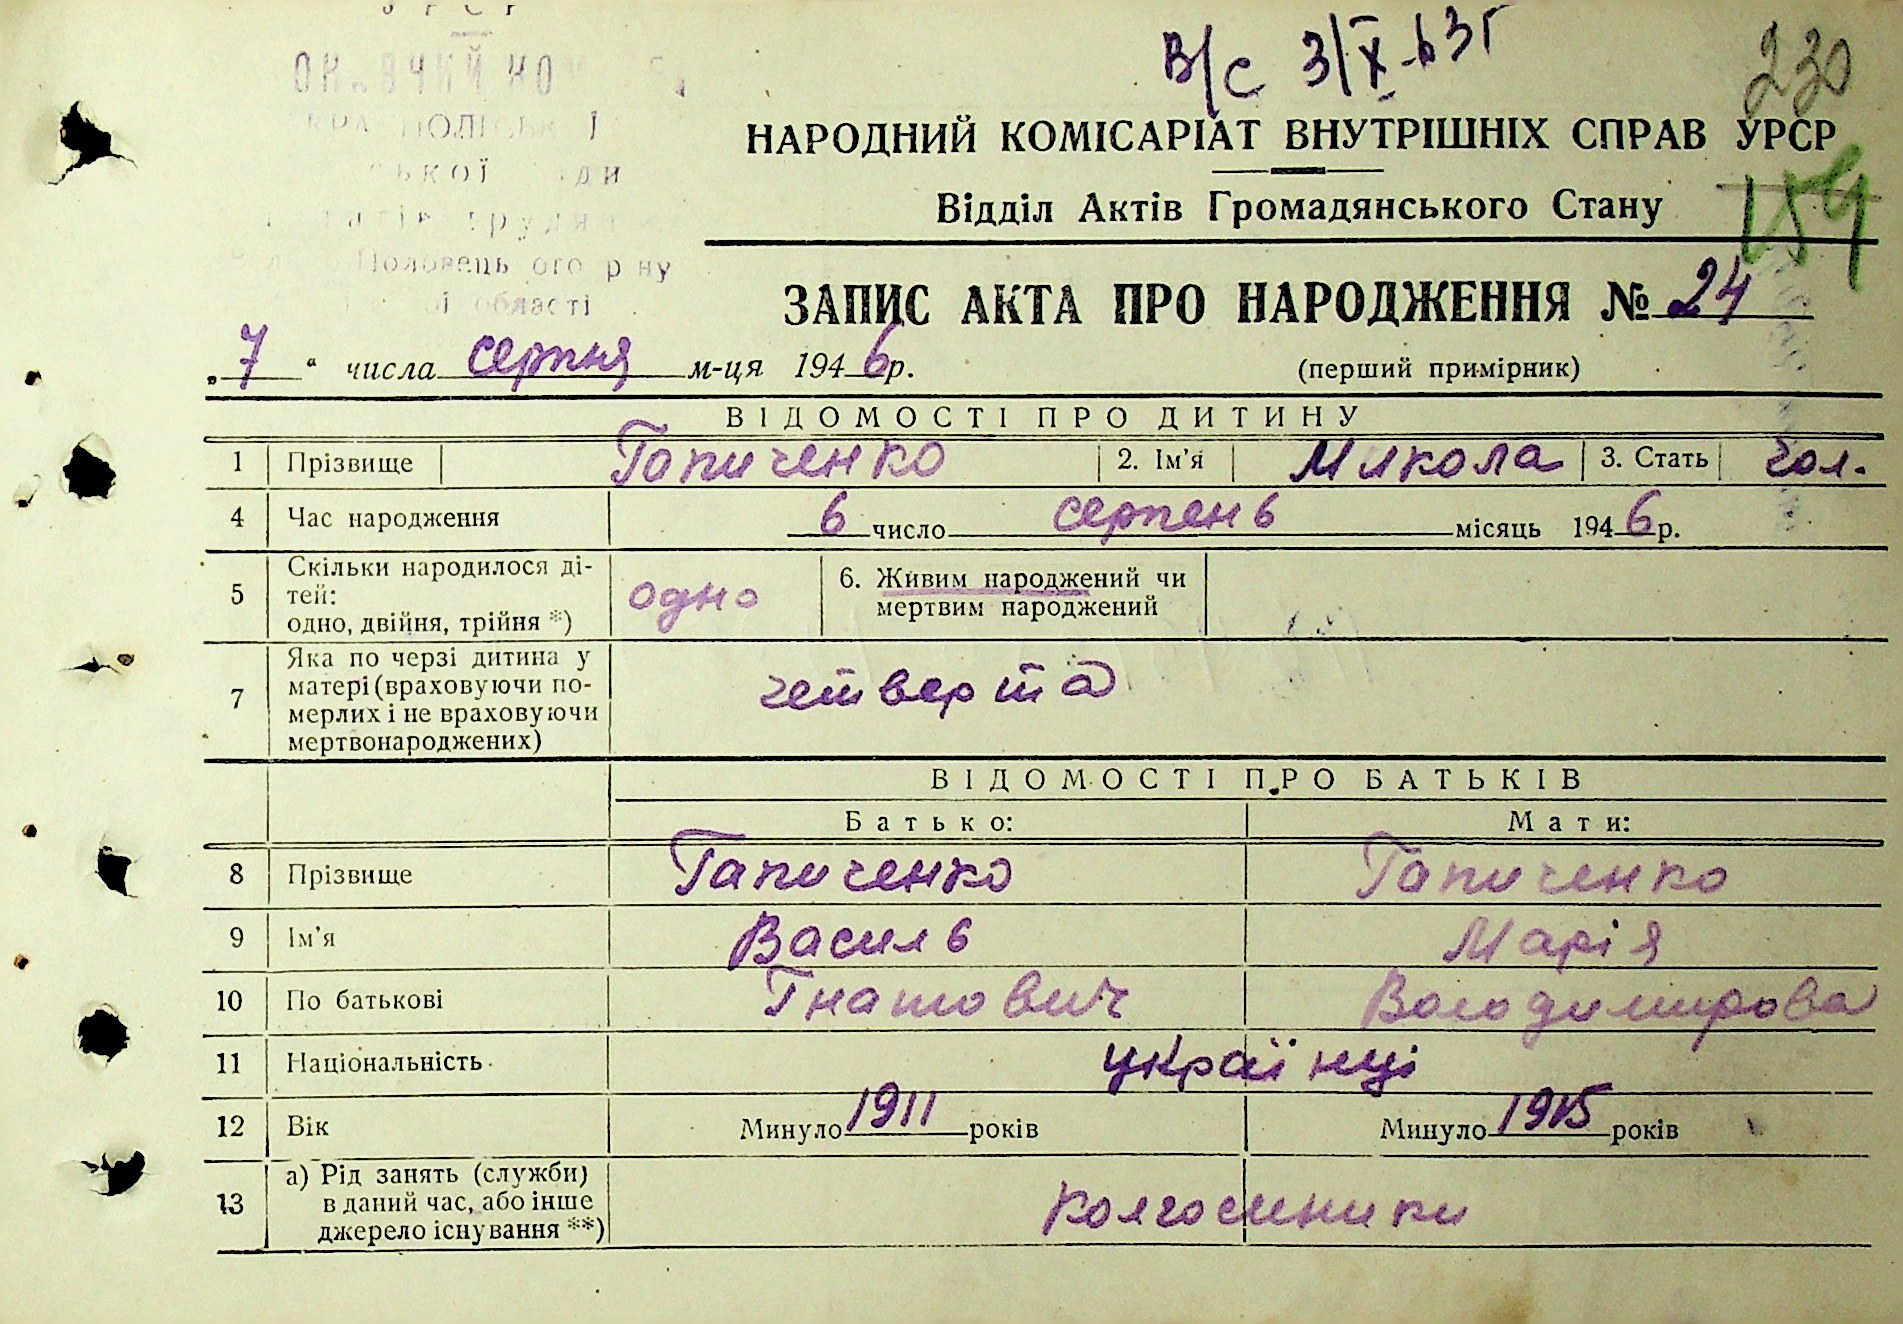 УРСР
В/с 3/X-63г
230
НАРОДНИЙ КОМІСАРІАТ ВНУТРІШНІХ СПРАВ УРСР
Відділ Актів Громадянського Стану
ЗАПИС АКТА ПРО НАРОДЖЕННЯ № 24
„7“ числа серпня м-ця 1946р.
(перший примірник)
ВІДОМОСТІ ПРО ДИТИНУ
1 Прізвище Гапиченко 2. Ім’я Микола 3. Стать чол.
4 Час народження 6 число серпень місяць 1946р.
5 Скільки народилося ді-
тей:
одно, двійня, трійня *) одно 6. Живим народжений чи
мертвим народжений
7 Яка по черзі дитина у
матері (враховуючи по-
мерлих і не враховуючи
мертвонароджених) четверта
ВІДОМОСТІ ПРО БАТЬКІВ
Батько: Мати:
8 Прізвище Гапиченко Гапиченко
9 Ім’я Василь Марія
10 По батькові Гнатович Володимирова
11 Національність українці
12 Вік Минуло 1911 років Минуло 1915 років
13 а) Рід занять (служби)
в даний час, або інше
джерело існування **) колгоспники